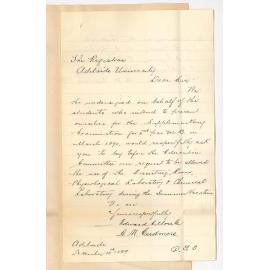 The Registrar
Adelaide University
Dear Sir,
We
the undersigned on behalf of the
students who intend to present
ourselves for the Supplementary
Examination for 2nd year M.B. in
March 1890, would respectfully ask
you to lay before the Education
Committee our request to be allowed
the use of the Dissecting Room,
Physiological Laboratory & Chemical
Laboratory during the Summer Vacation
We are
Yours respectfully
Edward
H. M.
Adelaide
P.T.O